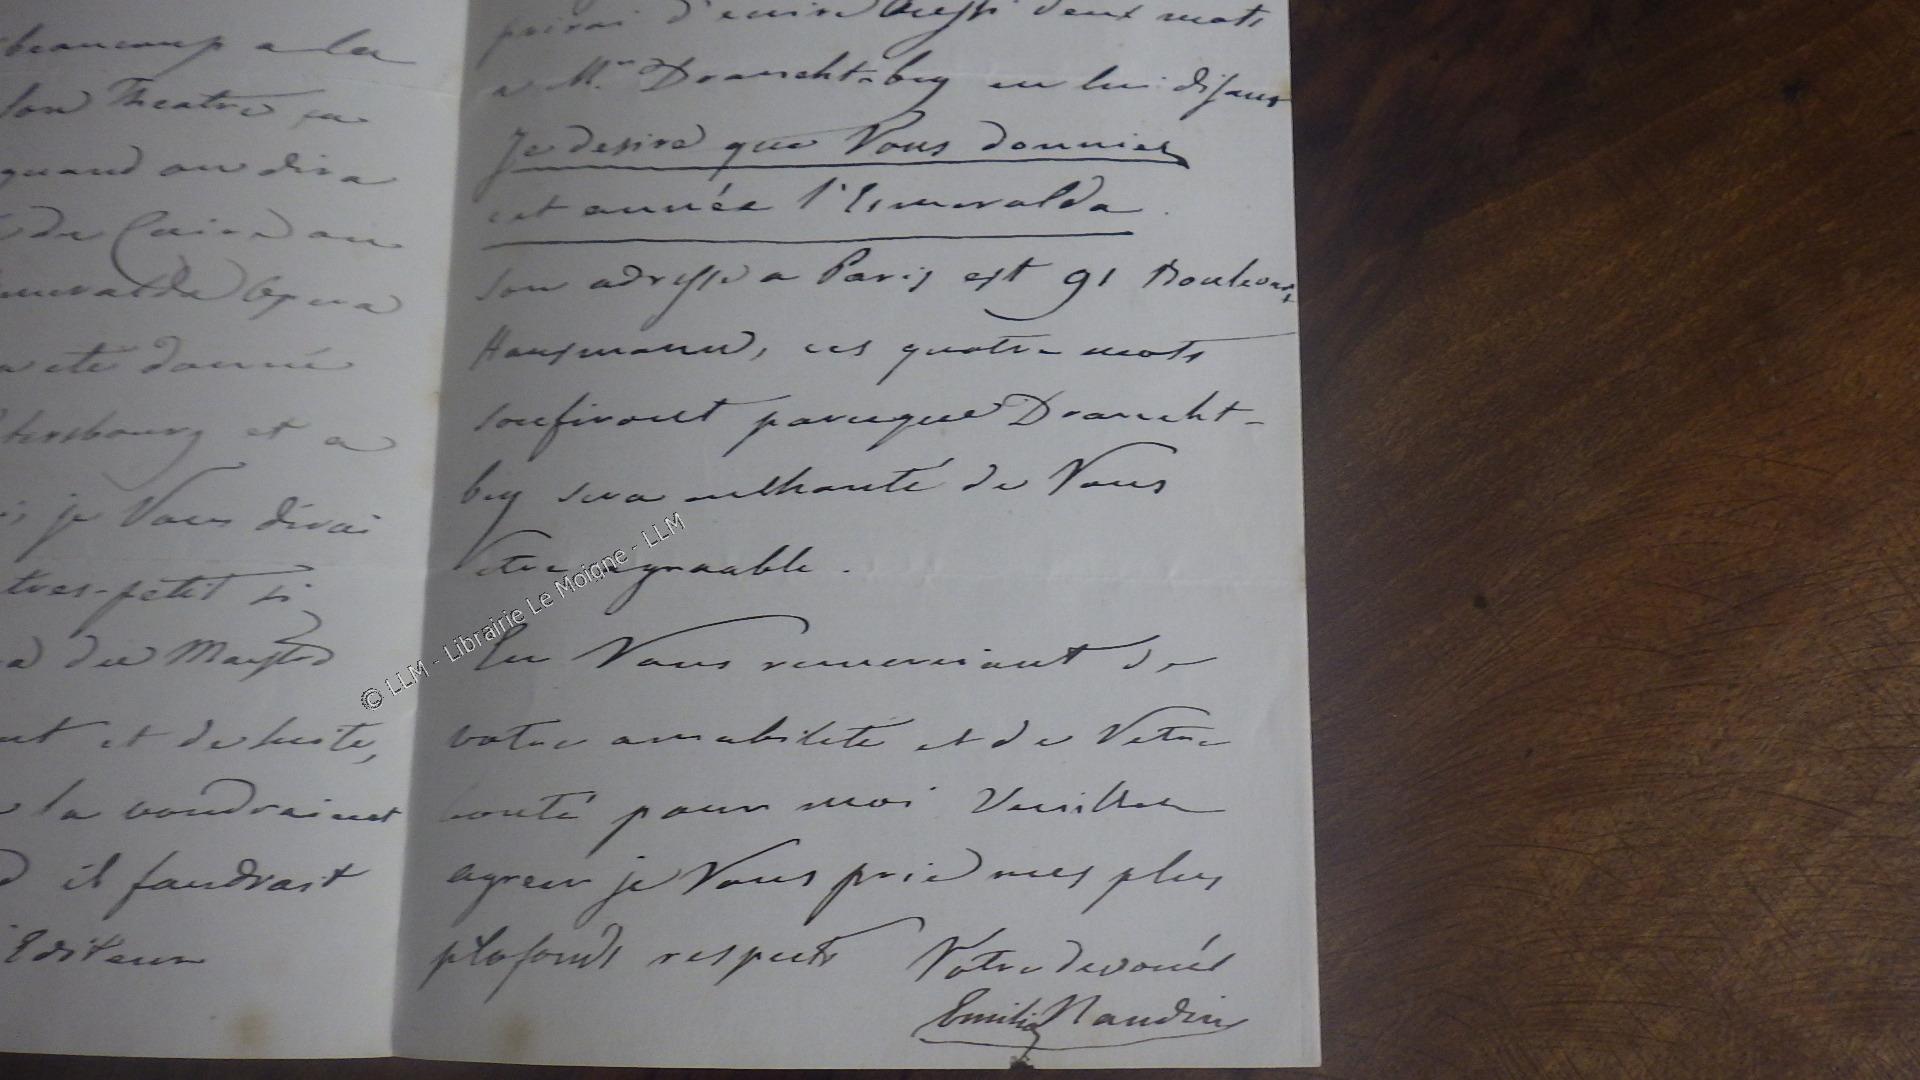 beaucoup a la
son Theatre sa
quand on dira
du Caire on
Esmeralda Opera
a ete donné
tersbourg et a
is je Vous dirai
tres-petit si
a du Maestro
nt et de suite,
la voudraient
il faudrait
Editeur
prirai d'ecrire aussi deux mots
a M.r Draneht-bey en lui disant
Je desire que Vous donniez
cet année l'Esmeralda.
son adresse a Paris est 91 Boulevart
Hausmann, ces quatre mots
soufiront parceque Draneht-
bey sera enchanté de Vous
etre agreable.
En Vous remerciant de
votre amabilité et de Votre
bonté pour moi Veuillez
agreer je Vous prie mes plus
plofonds respects Votre devoué
Emilio Naudin
© LLM - Librairie Le Moigne - LLM